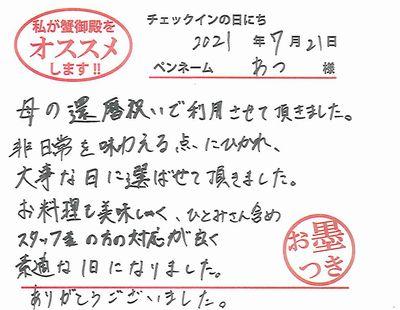 私が蟹御殿を
オススメ
します!!
チェックインの日にち
2021年7月21日
ペンネーム あつ 様
母の還暦祝いで利用させて頂きました。
非日常を味わえる点にひかれ、
大事な日に選ばせて頂きました。
お料理も美味しく、ひとみさん含め
スタッフ全の方の対応が良く
素適な1日になりました。
ありがとうございました。
お墨
つき